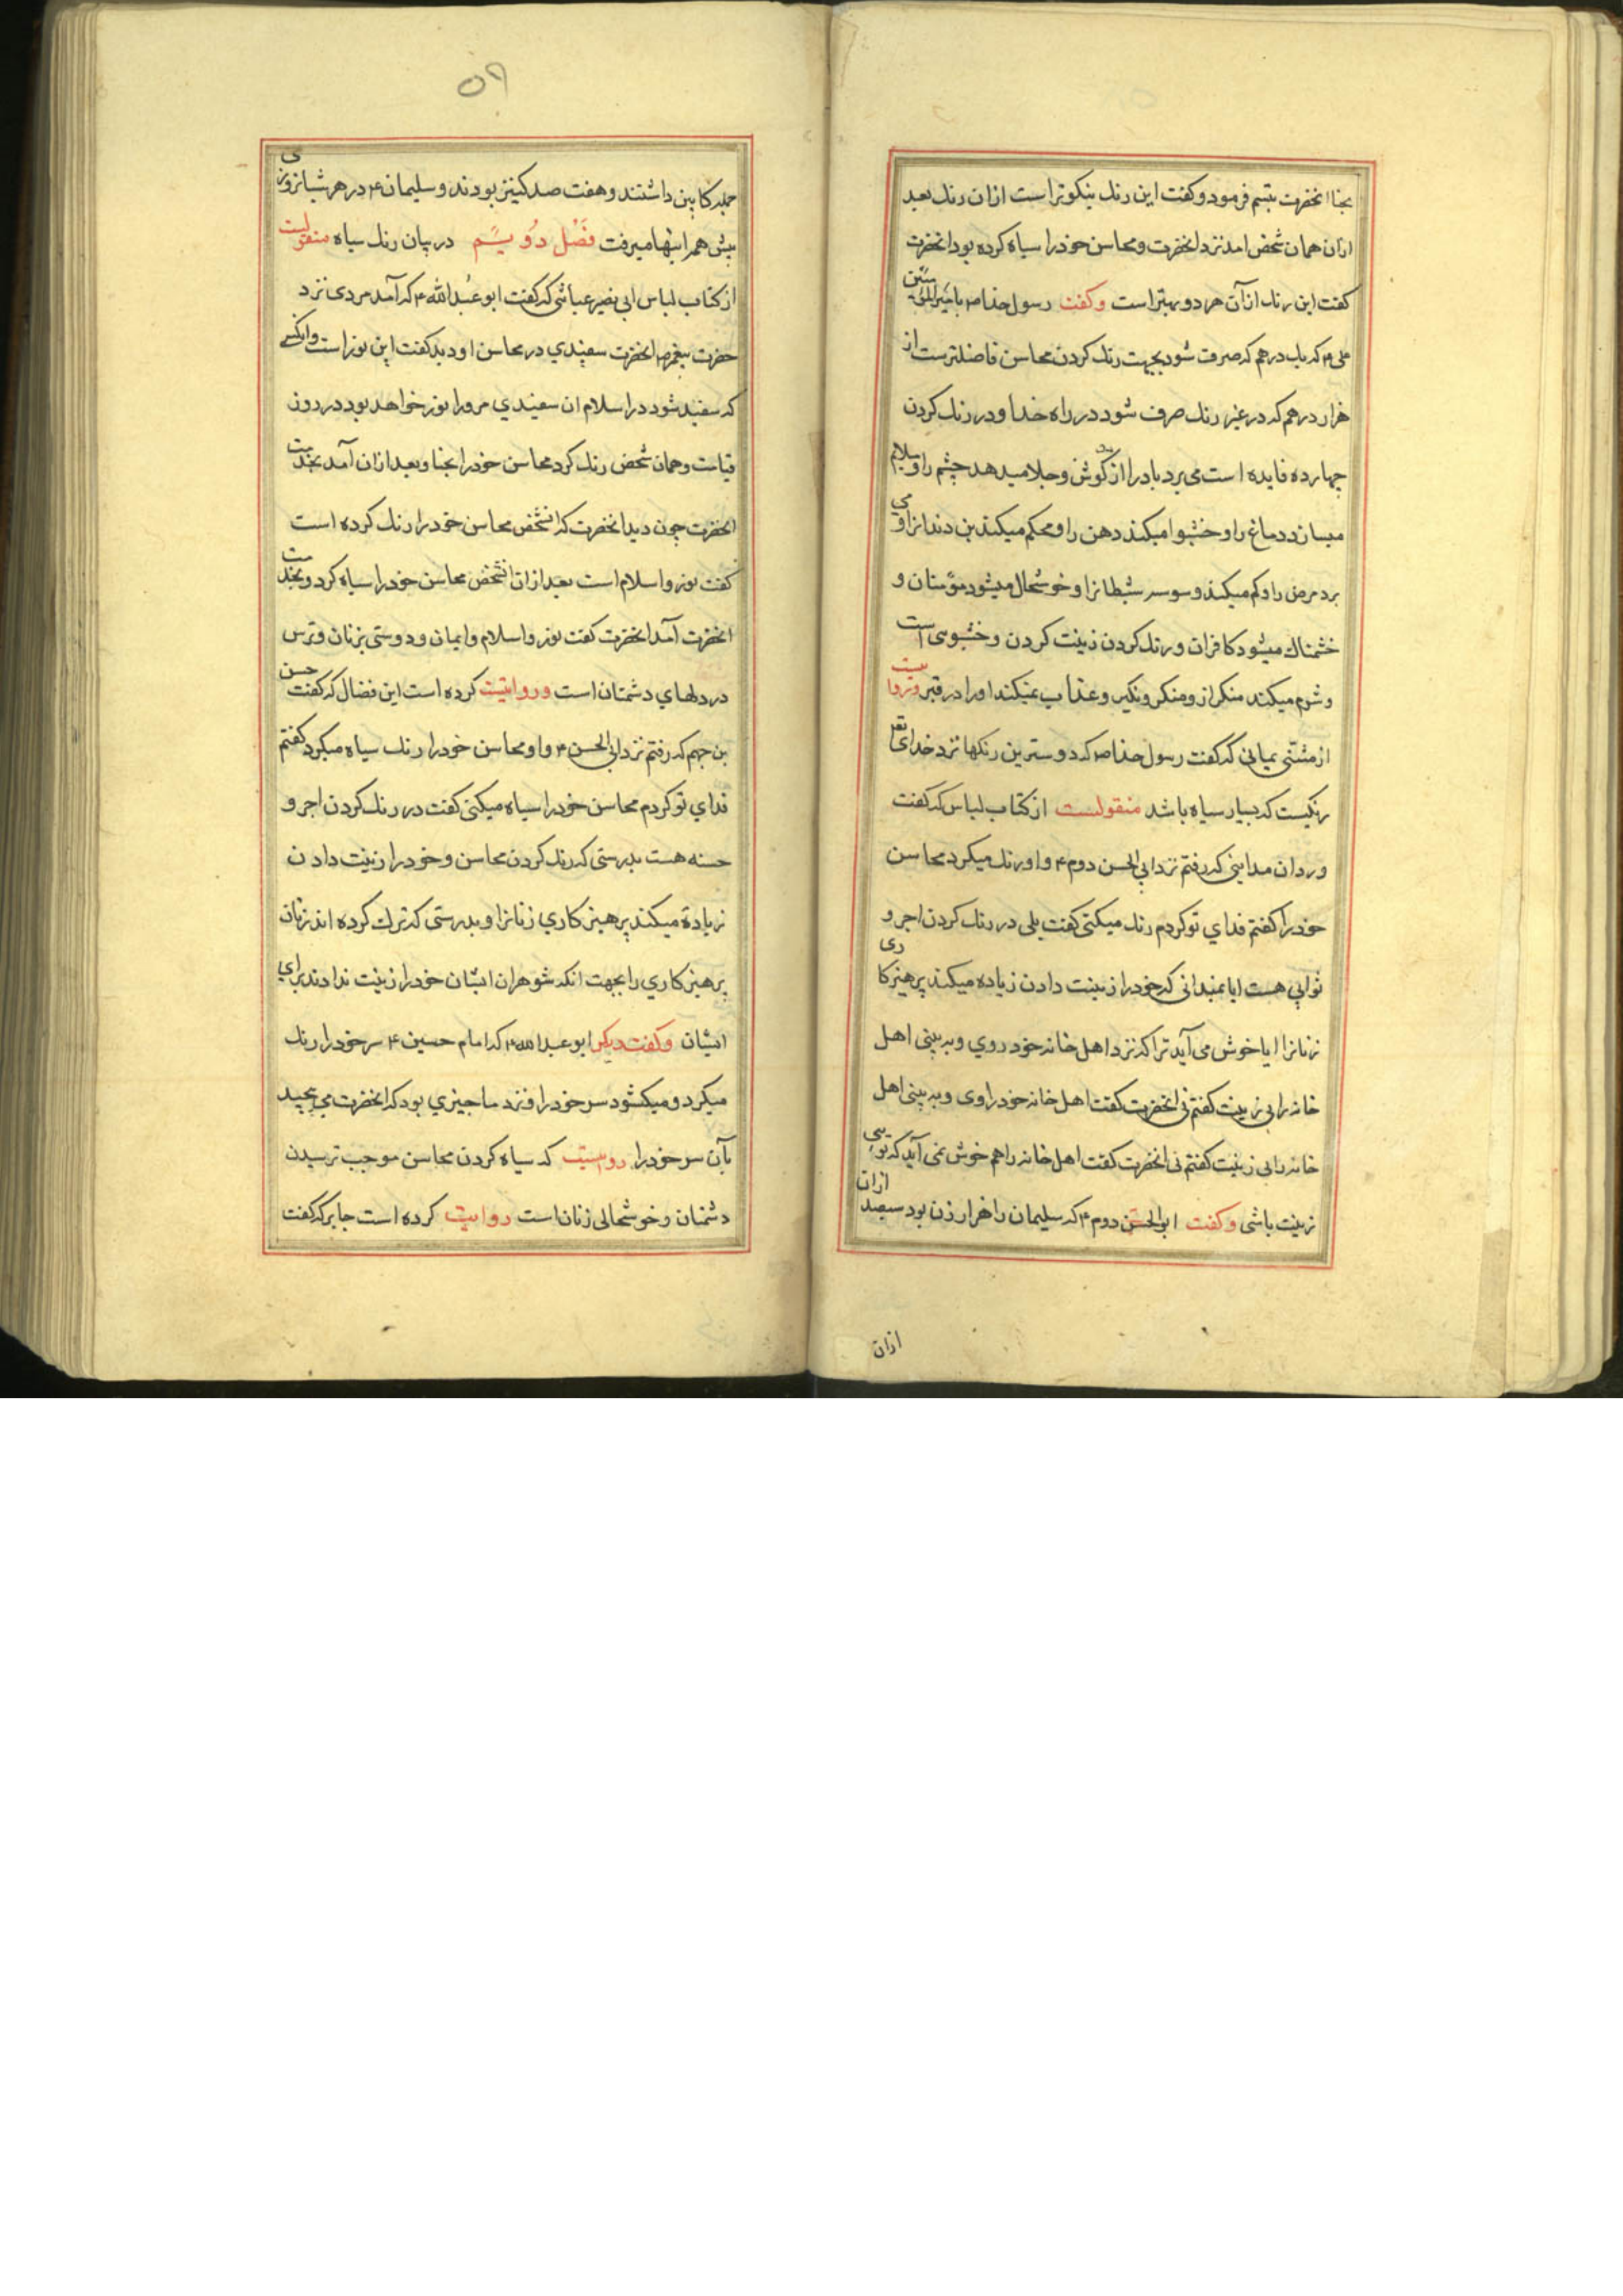 بحنا انحضرت تبسم فرمود و کفت این رنك نیکوتر است ازان رنك بعد
ازان همان شخص امد نزد انحضرت و محاسن خود را سیاه کرده بود انحضرت
کفت این رنك ازآن هر دو بهتر است وکفت رسول خدا ص با امیرالمؤمنین
علی ع که یك درهم که صرف شود بجهت رنك کردن محاسن فاضلترست از
هزار درهم که در غیر رنك صرف شود در راه خدا و در رنك کردن
چهارده فایده است می برد باد را از کوش و جلا میدهد چشم را و ملایم
میسازد دماغ را و خشبوا میکند دهن را و محکم میکند بن دندانرا و می
برد مرض را و کم میکند وسوسه شیطانرا و خوشحال میشود مؤمنان و
خشمناك میشود کافران و رنك کردن زینت کردن و خشبوی است
و شرم میکند منکر از و منکر و نکیر و عذاب نمیکند او را در قبر و روایست
از مثنی یمانی که کفت رسول خدا ص که دوسترین رنکها نزد خدای تع
رنکیست که بسیار سیاه باشد منقولست از کتاب لباس که کفت
وردان مداینی که رفتم نزد ابی الحسن دوم ع و او رنك میکرد محاسن
خود را کفتم فدای تو کردم رنك میکنی کفت بلی در رنك کردن اجر و
ثوابی هست ایا نمیدانی که خود را زینت دادن زیاده میکند پرهیزکاری
زنانرا ایا خوش می آید ترا که نزد اهل خانه خود روي و به بینی اهل
خانه را بی زینت کفتم نی انحضرت کفت اهل خانه خود را وی و به بینی اهل
خانه را بی زینت کفتم نی انحضرت کفت اهل خانه را هم خوش نمی آید که تو بی
زینت باشی وکفت ابو الحسن دوم ع که سلیمان را هزار زن بود سیصد ازان
ازان
٥٩
جمله کابین داشتند و هفت صد کنیز بودند و سلیمان ع در هر شبانروزی
پیش همه اینها میرفت فصل دویسم در بیان رنك سیاه منقولست
از کتاب لباس ابی نضیر عیاشی که کفت ابو عبدالله ع که آمد مردی نزد
حضرت پیغمبر ص انحضرت سفیدي در محاسن او دید کفت این نوراست و انکسی
که سفید شود در اسلام ان سفیدي مر ورا نور خواهد بود در روز
قیامت و همان شخص رنك کرد محاسن خود را بحنا و بعد ازان آمد بخدمت
انحضرت چون دید انحضرت که انشخص محاسن خود را رنك کرده است
کفت نور و اسلام است بعد ازان انشخص محاسن خود را سیاه کرد و بخدمت
انحضرت آمد انحضرت کفت نور و اسلام و ایمان و دوستی بزنان و ترس
در دلهاي دشمنان است و روایتست کرده است ابن فضال که کفت حسن
بن جهم که رفتم نزد ابی الحسن ع و او محاسن خود را رنك سیاه میکرد کفتم
فداي تو کردم محاسن خود را سیاه میکنی کفت در رنك کردن اجر و
حسنه هست بدرستی که رنك کردن محاسن و خود را زینت دادن
زیاده میکند پرهیزکاري زنانرا و بدرستی که ترك کرده اند زنان
پرهیزکاري را بجهت انکه شوهران ایشان خود را زینت ندادند براي
ایشان وکفت دیکر ابو عبدالله ع که امام حسین ع سر خود را رنك
میکرد و میکشود سر خود را و نزد ما چیزي بود که انحضرت می پیچید
بآن سر خود را رویست که سیاه کردن محاسن موجب ترسیدن
دشمنان و خوشحالی زنان است روایت کرده است جابر که کفت